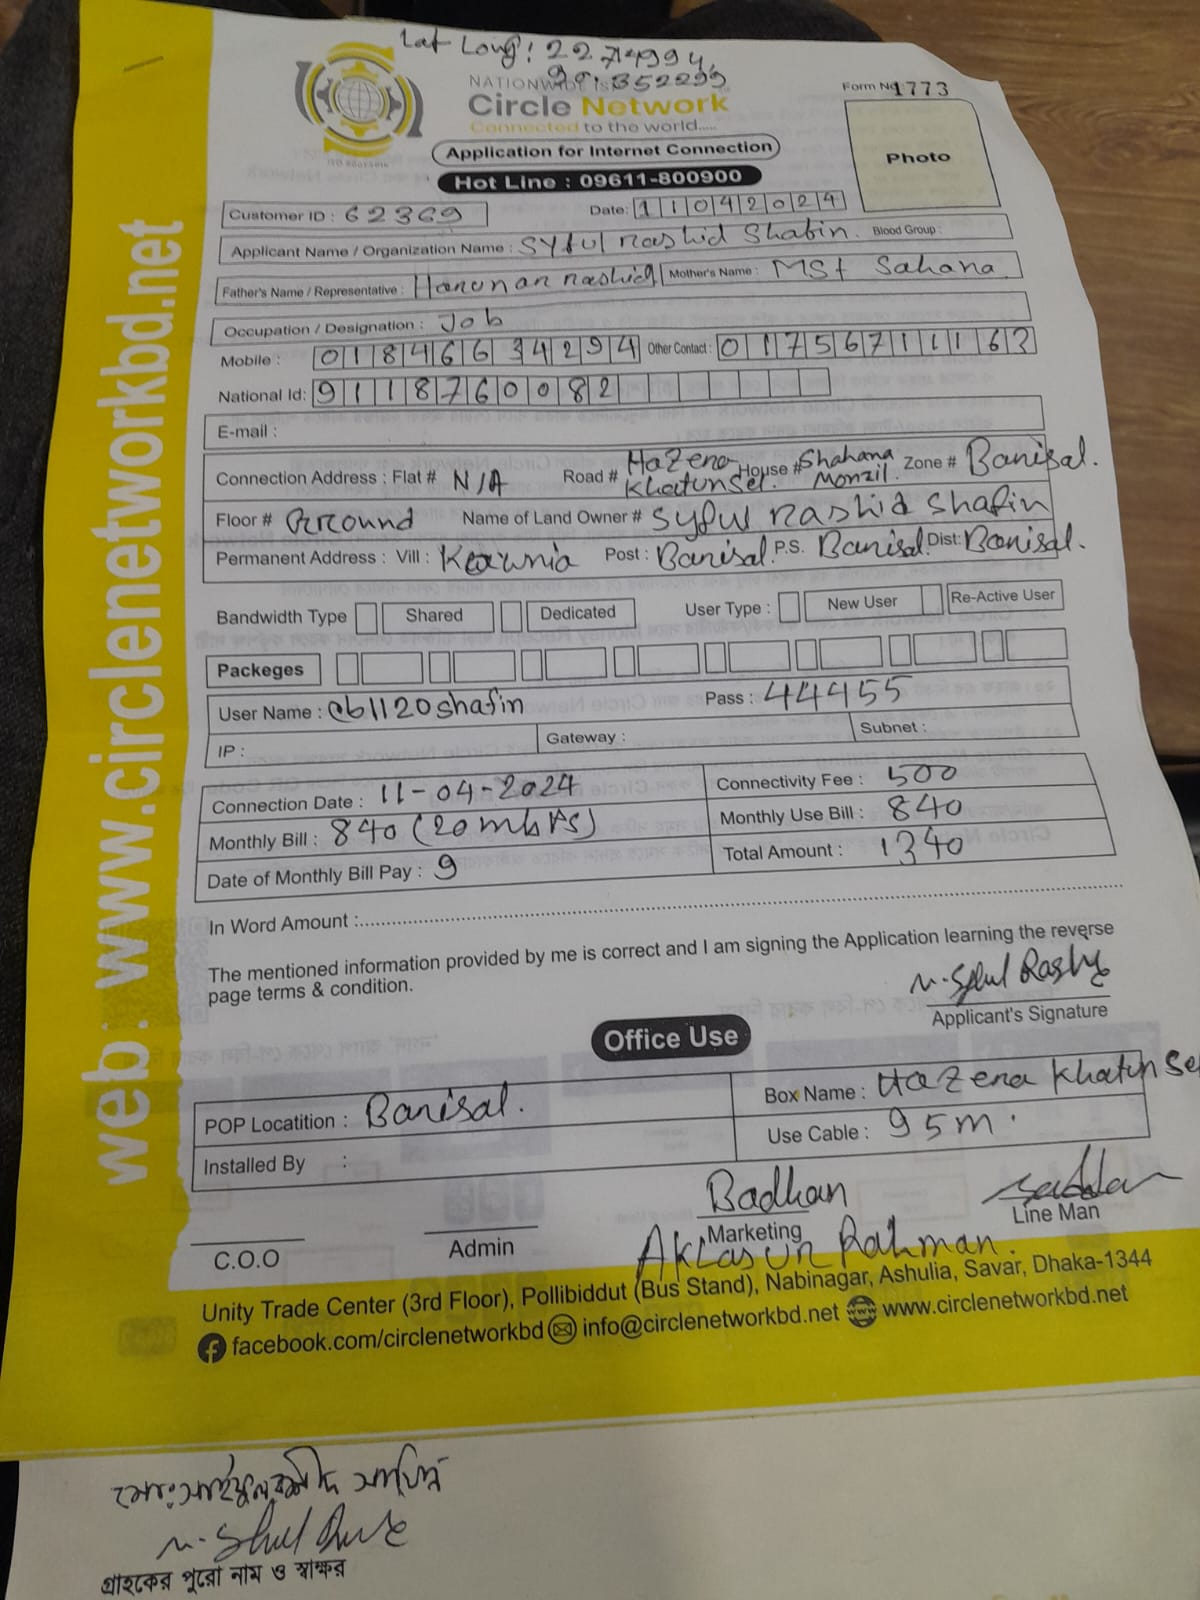 Lat Long: 22.714994,
90.352299
NATIONWIDE ISP
Circle Network
Connected to the world.....
Form No 1773
Application for Internet Connection
Photo
Hot Line : 09611-800900
Customer ID : 62369 Date: 11042024
Applicant Name / Organization Name : Syful Rashid Shafin. Blood Group :
Father's Name / Representative : Harunar Rashid Mother's Name : MSt Sahana
Occupation / Designation : Job
Mobile : 01846634294 Other Contact : 01756711163
National Id: 9118760082
E-mail :
Connection Address : Flat # N/A Road # Hazera Khatun House # Shahana Monzil. Zone # Barisal.
Floor # Ground Name of Land Owner # Syful Rashid Shafin
Permanent Address : Vill : Kawnia Post : Barisal. P.S. Barisal. Dist: Barisal.
Bandwidth Type Shared Dedicated User Type : New User Re-Active User
Packeges
User Name : cb1120shafin Pass : 44455
IP : Gateway : Subnet :
Connection Date : 11-04-2024 Connectivity Fee : 500
Monthly Bill : 840 (20mbps) Monthly Use Bill : 840
Date of Monthly Bill Pay : 9 Total Amount : 1340
In Word Amount :
The mentioned information provided by me is correct and I am signing the Application learning the reverse
page terms & condition.
Applicant's Signature
Office Use
POP Locatition : Barisal. Box Name : Hazera Khatun
Installed By : Use Cable : 95m.
Badhan
C.O.O Admin Marketing Line Man
Aklasur Rahman.
Unity Trade Center (3rd Floor), Pollibiddut (Bus Stand), Nabinagar, Ashulia, Savar, Dhaka-1344
facebook.com/circlenetworkbd info@circlenetworkbd.net www.circlenetworkbd.net
web: www.circlenetworkbd.net
মোঃ সাইফুল রশীদ সাফিন
গ্রাহকের পুরো নাম ও স্বাক্ষর